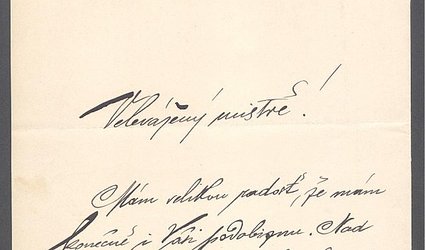 Velevážený mistře!
Mám velikou radost, že mám
konečně i Vaši podobiznu. Nad